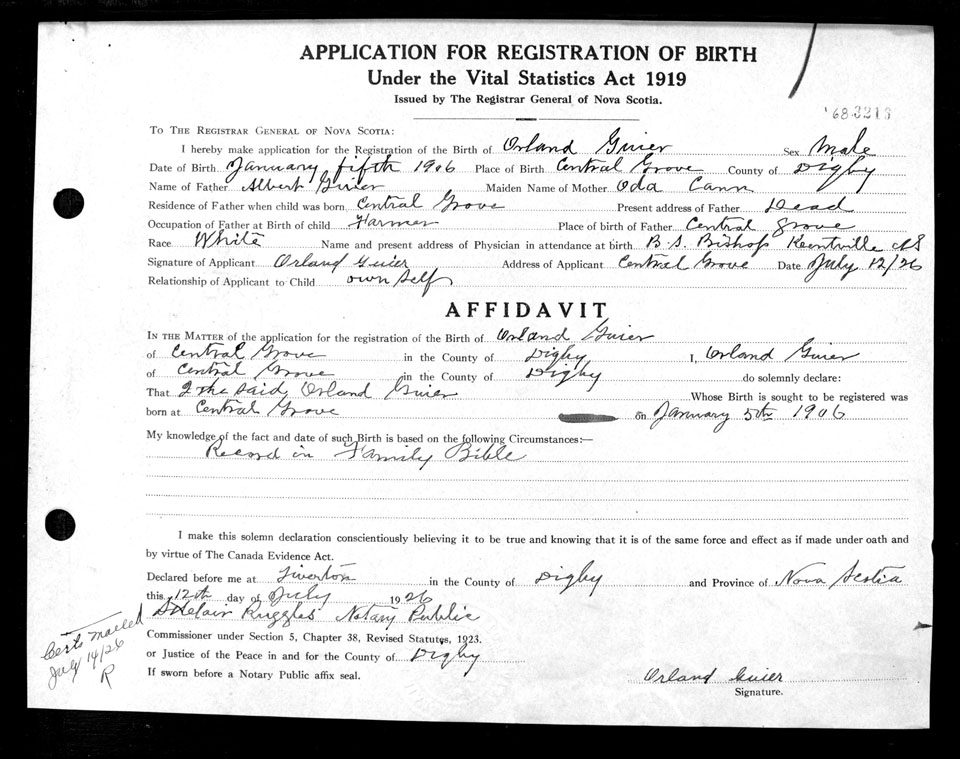 APPLICATION FOR REGISTRATION OF BIRTH
Under the Vital Statistics Act 1919
Issued by The Registrar General of Nova Scotia.
'68 3213
TO THE REGISTRAR GENERAL OF NOVA SCOTIA:
I hereby make application for the Registration of the Birth of Orland Guier Sex Male
Date of Birth January fifth 1906 Place of Birth Central Grove County of Digby
Name of Father Albert Guier Maiden Name of Mother Oda Cann
Residence of Father when child was born Central Grove Present address of Father Dead
Occupation of Father at Birth of child Farmer Place of birth of Father Central Grove
Race White Name and present address of Physician in attendance at birth B.S. Bishop Kentville NS
Signature of Applicant Orland Guier Address of Applicant Central Grove Date July 12/26
Relationship of Applicant to Child own self
AFFIDAVIT
IN THE MATTER of the application for the registration of the Birth of Orland Guier
of Central Grove in the County of Digby I, Orland Guier
of Central Grove in the County of Digby do solemnly declare:
That I the said Orland Guier Whose Birth is sought to be registered was
born at Central Grove on January 5th 1906
My knowledge of the fact and date of such Birth is based on the following Circumstances:—
Record in Family Bible
I make this solemn declaration conscientiously believing it to be true and knowing that it is of the same force and effect as if made under oath and
by virtue of The Canada Evidence Act.
Declared before me at Tiverton in the County of Digby and Province of Nova Scotia
this 12th day of July 1926
Ruggles Notary Public
Commissioner under Section 5, Chapter 38, Revised Statutes, 1923.
or Justice of the Peace in and for the County of Digby
If sworn before a Notary Public affix seal.
Orland Guier
Signature.
Certs mailed
July 14/26
R